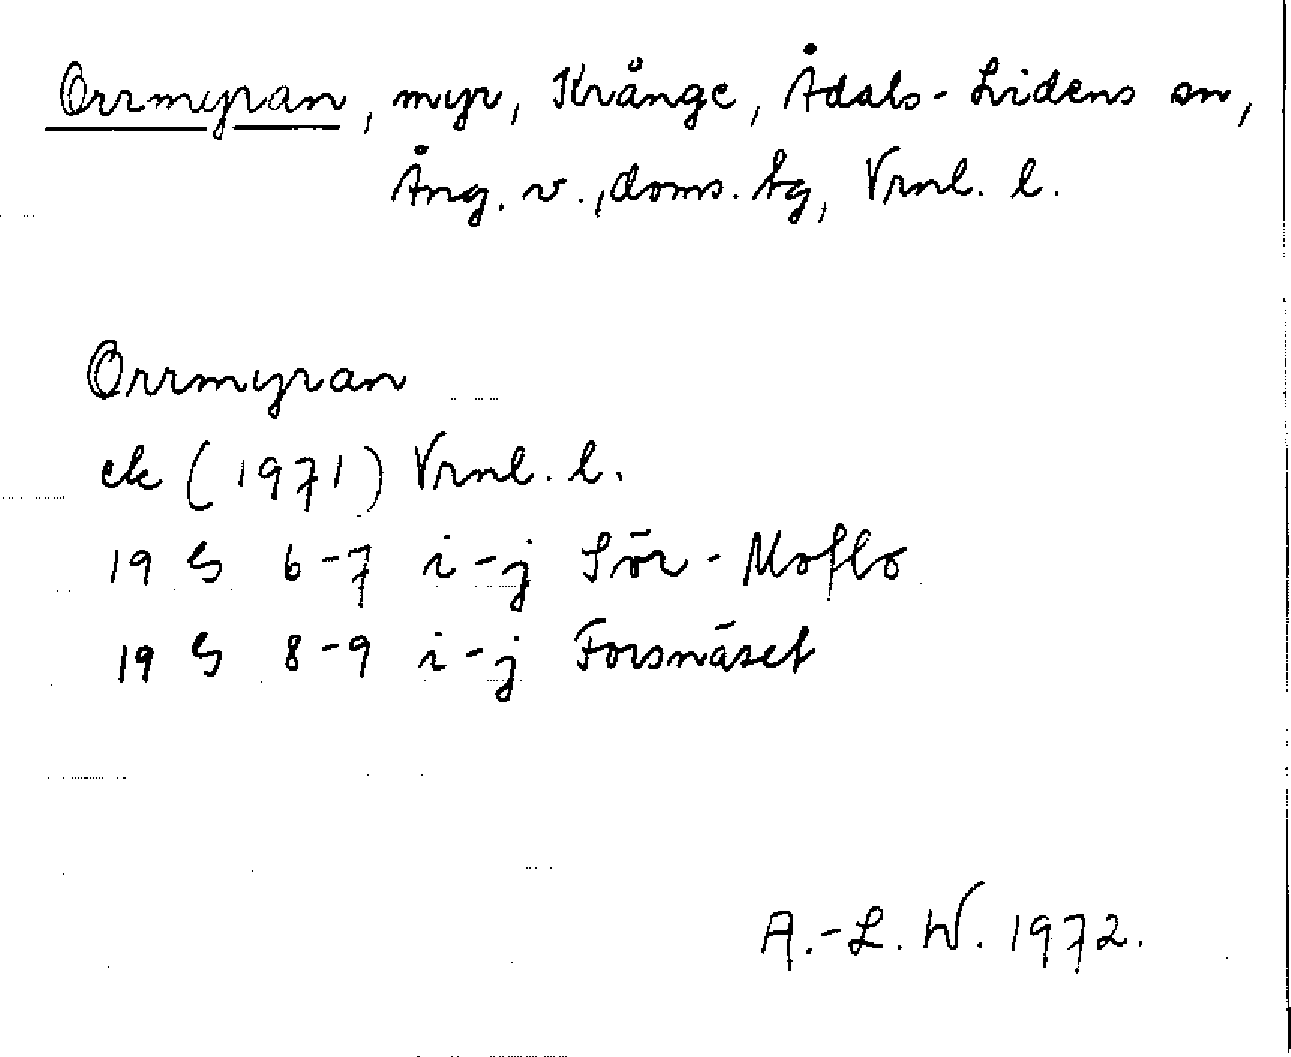 Orrmyran, myr, Krånge, Ådals-Lidens sn,
Ång. v., doms. tg, Vrnl. l.
Orrmyran
ek (1971) Vrnl. l.
19 G 6-7 i-j Sör-Moflo
19 G 8-9 i-j Forsnäset
A.-L. W. 1972.